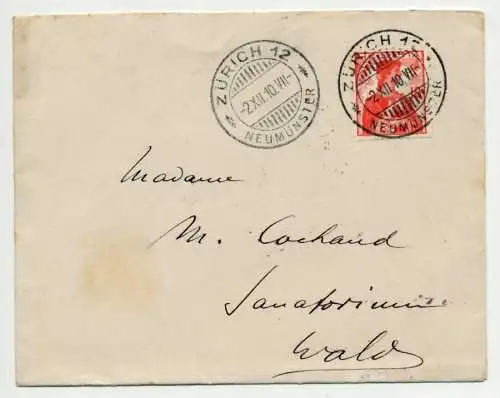 ZÜRICH 12
-2.XII.10.VII-
NEUMÜNSTER
ZÜRICH 12
-2.XII.10.VII-
NEUMÜNSTER
Madame
M. Cochand
Sanatorium
Wald